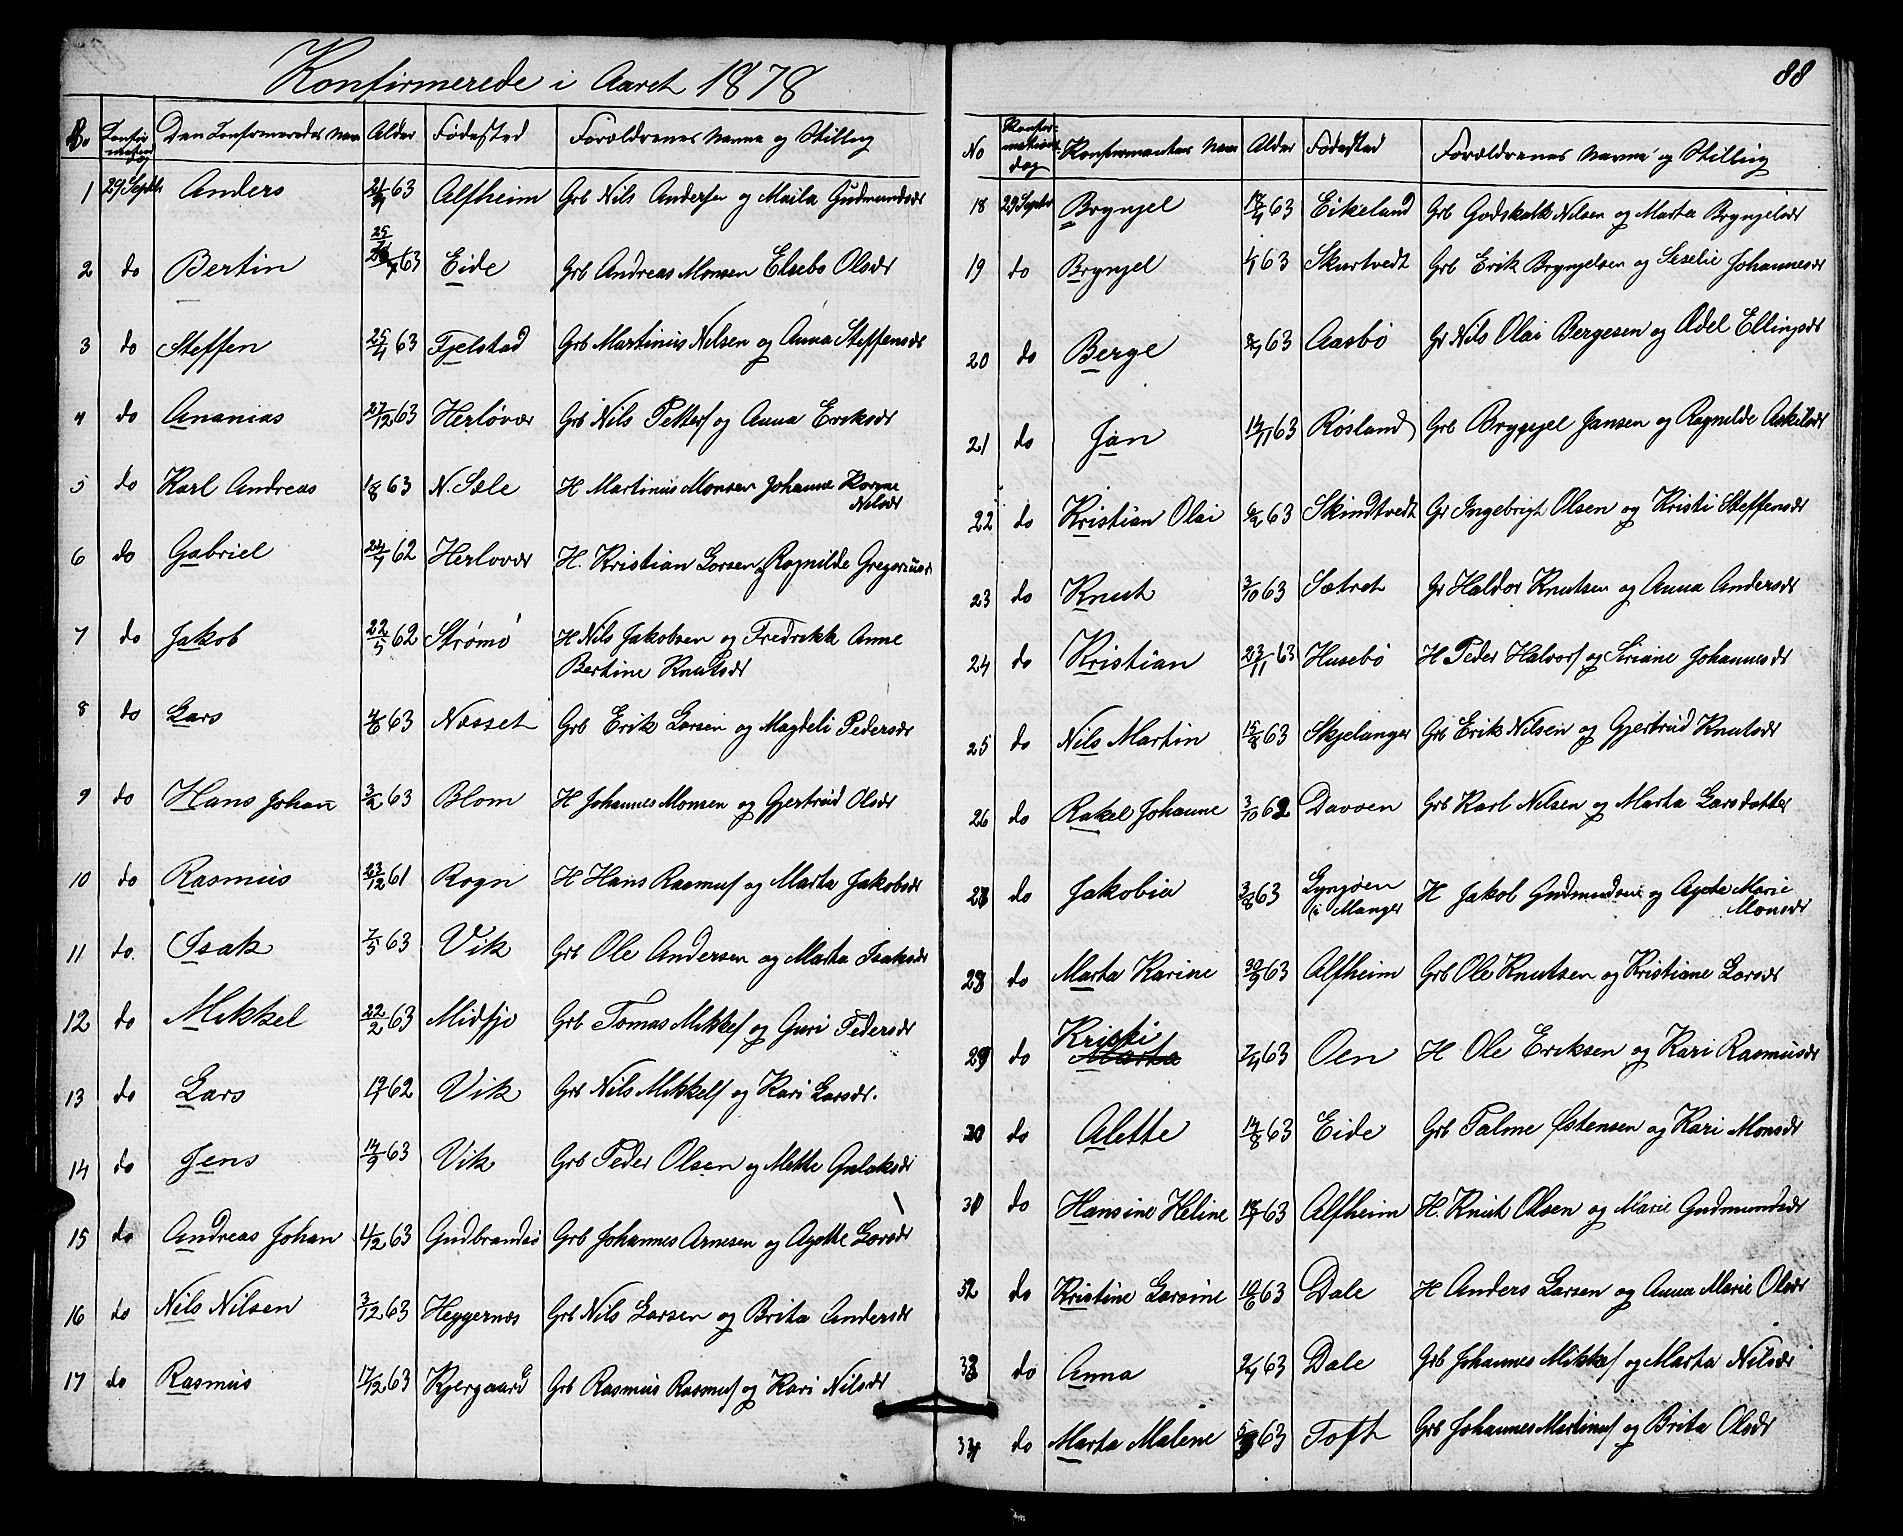 Konfirmerede i Aaret 1878
No Konfirmations dag Den Konfirmeredes Navn Alder Fødested Forældrenes Navne og Stilling
1 29 Septb. Anders 63 Alfheim Grb Nils Andersen og Maila Gudmundsdr
2 do Bertin 25/ 63 Eide Grb Andreas Monsen Elsebe Olsdr
3 do Steffen 25/4 63 Fjelstad Grb Martinius Nilsen og Anna Steffensdr
4 do Ananias 27/12 63 Herløvær Grb Nils Petters og Anna Eriksdr
5 do Karl Andreas 1/8 63 N. Sæle H Martinus Monsen Johanna Korine
Nilsdr
6 do Gabriel 24/7 62 Herlovær H. Kristian Larsen og Ragnilde Gregoriusdr
7 do Jakob 22/5 62 Strømø H Nils Jakobsen og Fredrikke Anne
Bertine Knutsdr
8 do Lars 4/6 63 Næsset Grb Erik Larsen og Magdeli Pedersdr
9 do Hans Johan 3/2 63 Blom H Johannes Monsen og Gjertrud Olsdr
10 do Rasmus 23/12 61 Rogn H Hans Rasmus og Marta Jakobsdr
11 do. Isak 7/5 63 Vik Grb Ole Andersen og Marta Isaksdr
12 do Mikkel 22/2 63 Midtjo Grb Tomas Mikkels og Guri Pedersdr
13 do Lars 62 Vik Grb Nils Mikkels og Kari Larsdr.
14 do Jens 14/9 63 Vik Grb Peder Olsen og Mette
15 do Andreas Johan 4/12 63 Gudbrandsø Grb Johannes Arnesen og Agethe Larsdr
16 do Nils Nilsen 3/12 63 Heggernæs Grb Nils Larsen og Brita Andersdr
17 do Rasmus 17/12 63 Kjergaard Grb Rasmus Rasmus og Kari Nilsdr
88
No Konfirmations dag Konfirmantens Navn Alder Fødested Forældrenes Navne og Stilling
18 29 Septbr Brynjel 63 Eikeland Grb Godskalk Nilsen og Marta Brynjelsdr
19 do Brynjel 63 Skurtvedt Grb Erik Brynjelsen og Siselie Johannesdr
20 do Berge 63 Aasbø Gr Nils Olai Bergesen og Adel Ellingsdr
21 do Jan 14/11 63 Røsland Grb Brynjel Jansen og Ragnilde Askilsdr
22 do Kristian Olai 63 Skindtvedt Gr Ingebrigt Olsen og Kristi Steffensdr
23 do Knut 3/10 63 Sætret Gr Haldor Knutsen og Anna Andersdr
24 do Kristian 23/11 63 Husebø H Peder Halvors og Siriane Johannesdr
25 do Nils Martin 15/8 63 Skjelanger Grb Erik Nilsen og Gjertrud Knutsdr
26 do Rakel Johanne 3/10 62 Davøen Grb Karl Nilsen og Marta Larsdatter
27 do Jakobia 3/8 63 Lyngøen
(i Manger H Jakob Gudmundsen og Agete Marie
Monsdr
28 do Marta Karine 30/9 63 Alfheim Grb Ole Knutsen og Kristiane Larsdr
Kristi
29 do Marta 63 Oen H Ole Eriksen og Kari Rasmusdr
30 do Alette 14/8 63 Eide Grb Palme Østensen og Kari Monsdr
31 do Hansine Heline 63 Alfheim H. Knut Olsen og Marie Gudmundsdr
32 do Kristine Larsine 63 Dale H Anders Larsen og Anna Marie Olsdr
33 do Anna 63 Dale Grb Johannes Mikkels og Marta Nilsdr
34 do Marta Malene 63 Toft Grb Johannes Martinus og Brita Olsdr